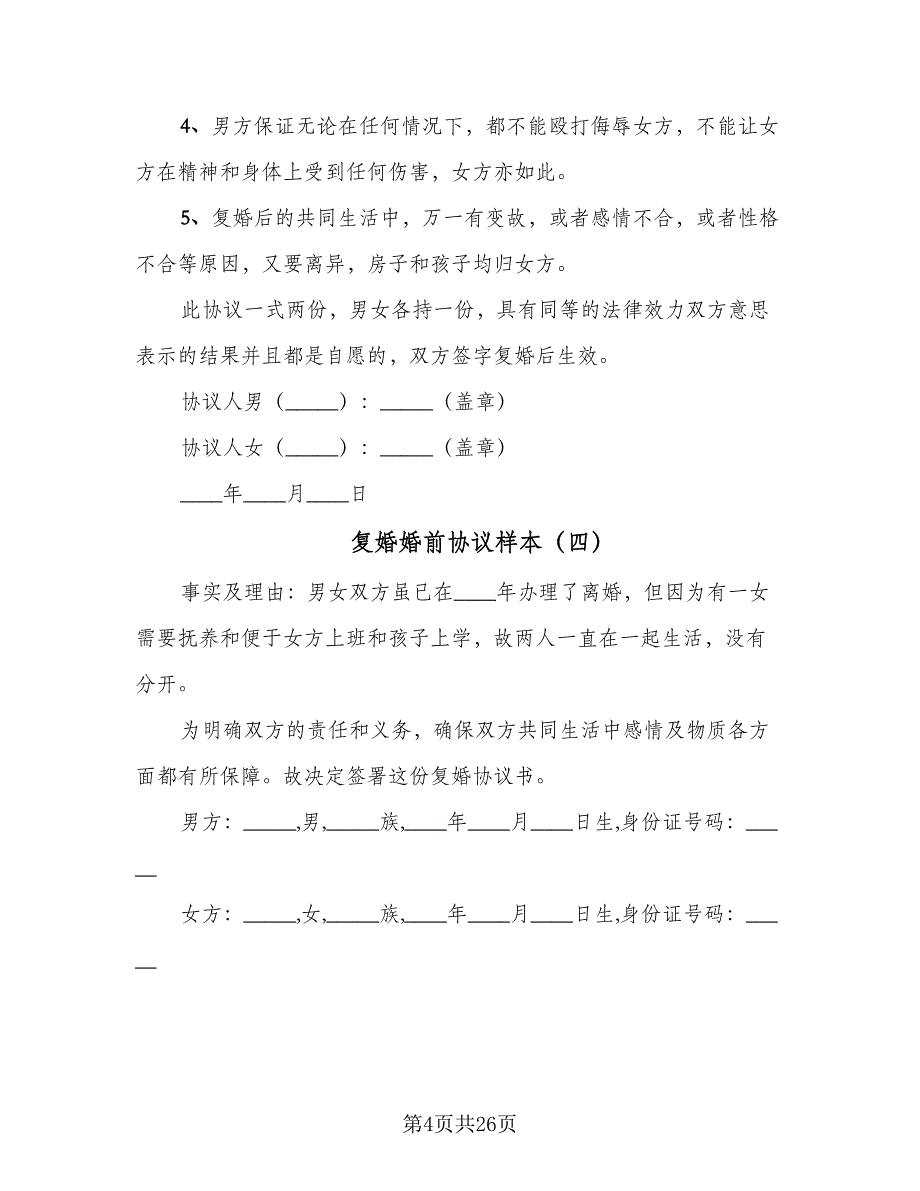 4、男方保证无论在任何情况下，都不能殴打侮辱女方，不能让女
方在精神和身体上受到任何伤害，女方亦如此。
5、复婚后的共同生活中，万一有变故，或者感情不合，或者性格
不合等原因，又要离异，房子和孩子均归女方。
此协议一式两份，男女各持一份，具有同等的法律效力双方意思
表示的结果并且都是自愿的，双方签字复婚后生效。
协议人男（_____）：_____（盖章）
协议人女（_____）：_____（盖章）
____年____月____日
复婚婚前协议样本（四）
事实及理由：男女双方虽已在____年办理了离婚，但因为有一女
需要抚养和便于女方上班和孩子上学，故两人一直在一起生活，没有
分开。
为明确双方的责任和义务，确保双方共同生活中感情及物质各方
面都有所保障。故决定签署这份复婚协议书。
男方：_____,男,_____族,____年____月____日生,身份证号码：___
__
女方：_____,女,_____族,____年____月____日生,身份证号码：___
__
第4页共26页